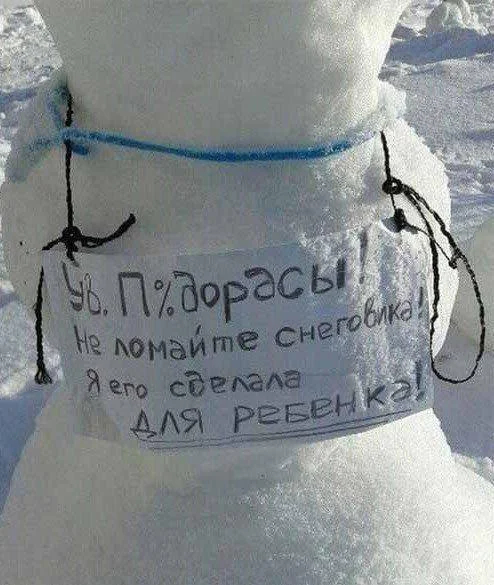 Ув. П%дорасы!
Не ломайте снеговика!
Я его сделала
ДЛЯ РЕБЕНКа!